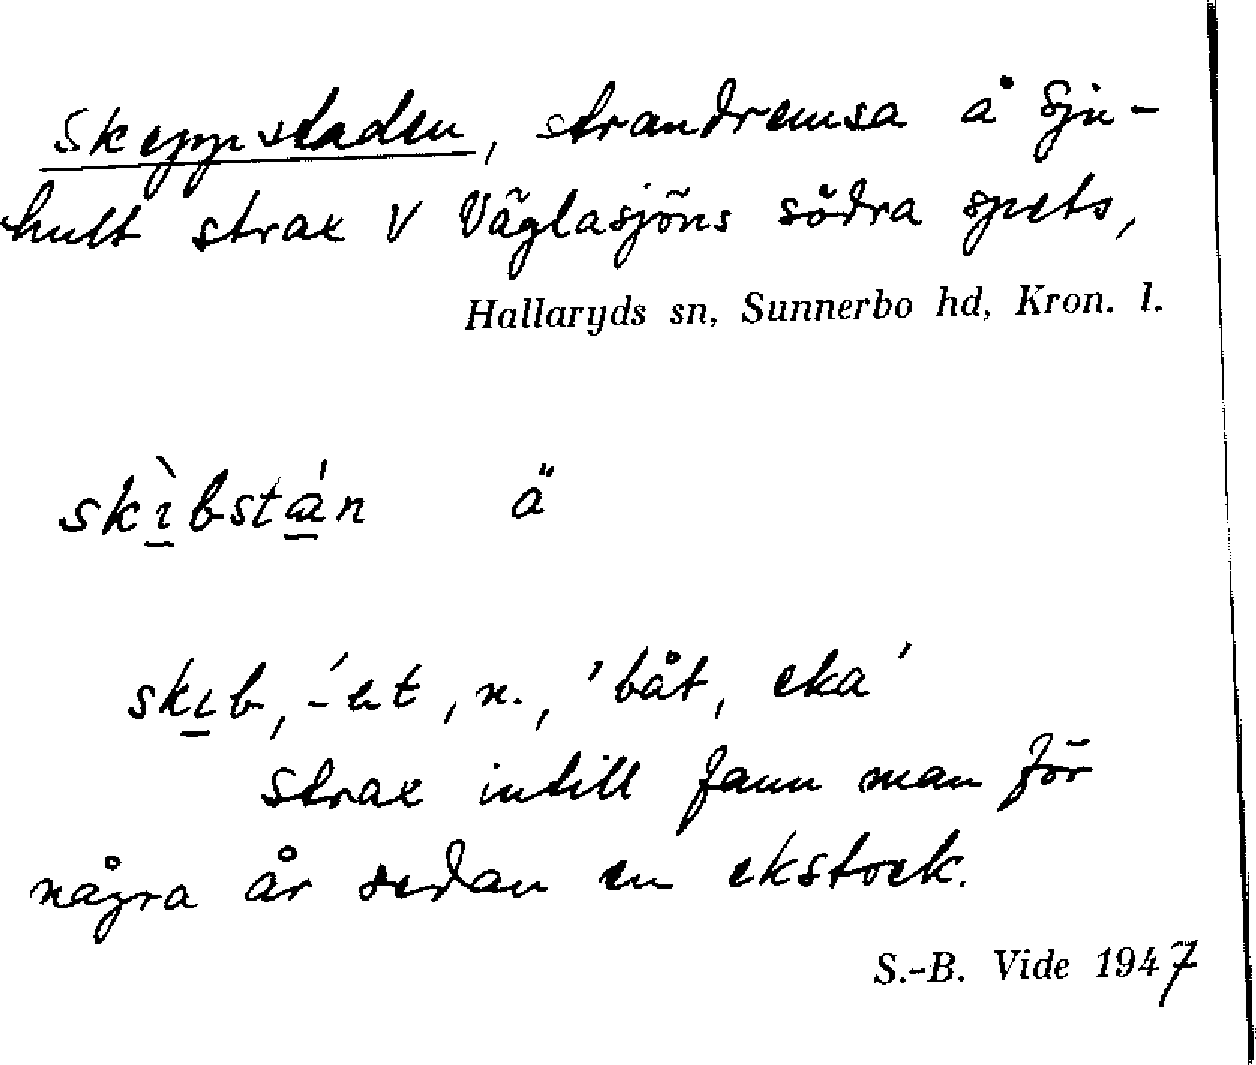 Skeppstaden, strandremsa å Sju-
hult strax V Väglasjöns södra spets,
Hallaryds sn, Sunnerbo hd, Kron. l.
skı̱̀bstá̱n ä
skı̱b, -́et, n., 'båt, eka'
Strax intill fann man för
några år sedan en ekstock.
S.-B. Vide 1947